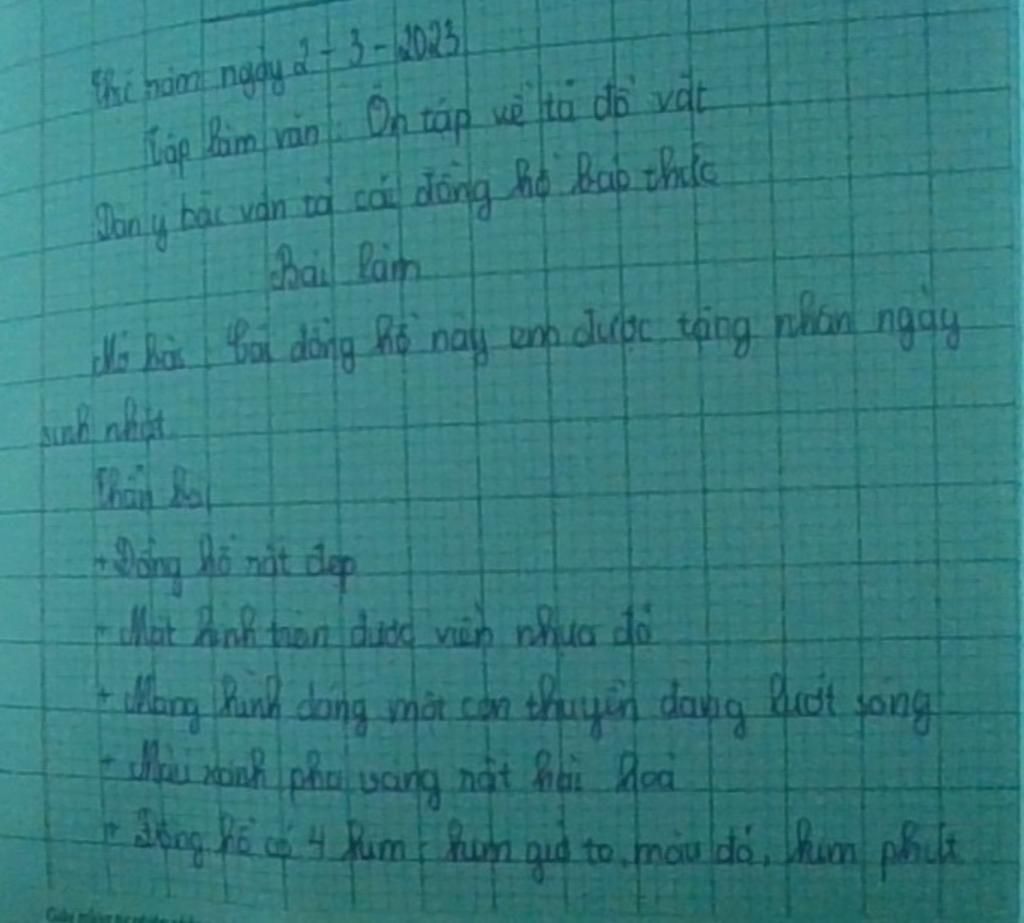 Thứ năm ngày 2 - 3 - 2023
Tập làm văn: Ôn tập về tả đồ vật
Dàn ý bài văn tả cái đồng hồ báo thức
Bài làm
Mở bài: Cái đồng hồ này em được tặng nhân ngày
sinh nhật
Thân bài
+ Đồng hồ rất đẹp
+ Mặt hình tròn được viền nhựa đỏ
+ Mang hình dáng một con thuyền đang lướt sóng
+ Màu xanh pha vàng rất hài hoà
+ Đồng hồ có 4 kim: kim giờ to, màu đỏ, kim phút